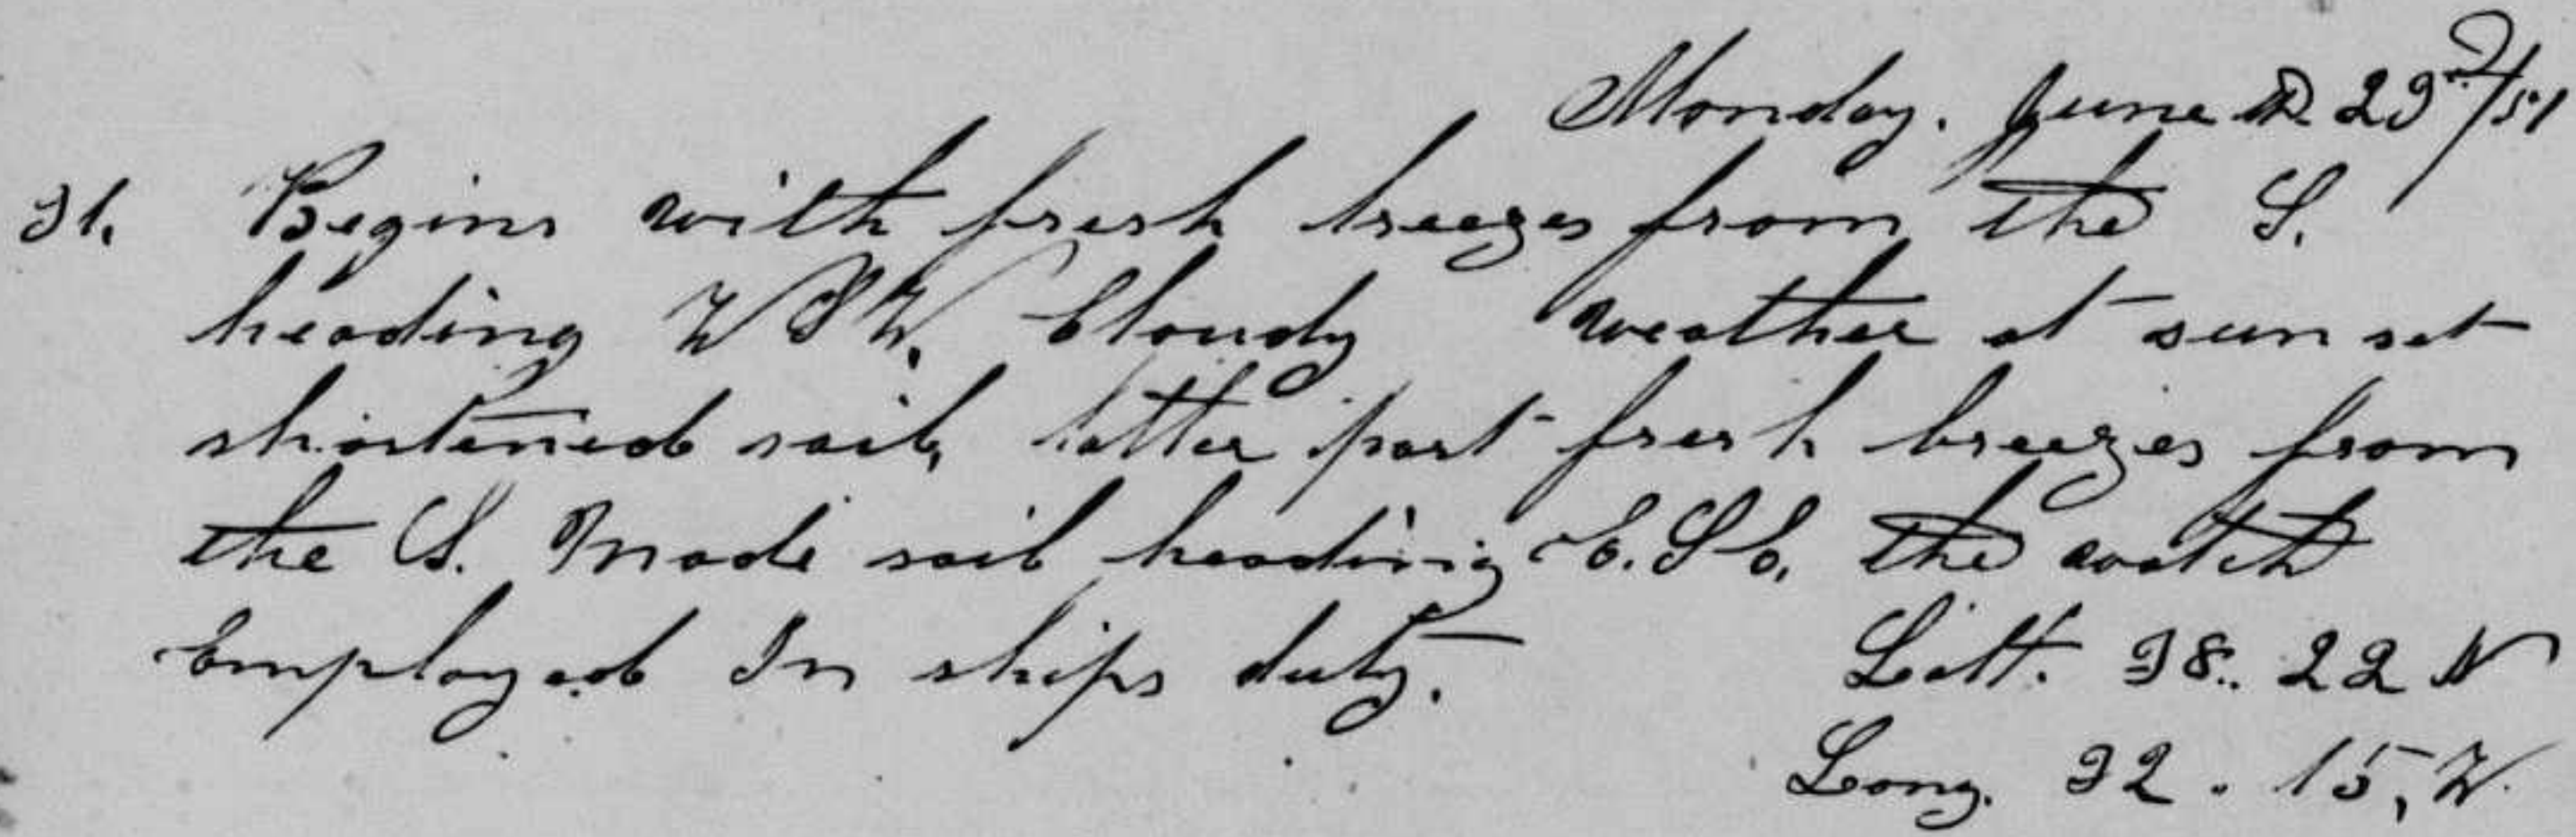 Monday. June 23d/51
31. Begins with fresh breezes from the S.
heading WSW. Cloudy weather at sun set
shortened sail, latter part fresh breezes from
the S. Made sail heading E.SE. the watch
Employed In ships duty.
Latt. 38.. 22 N
Long. 32. 15, W.